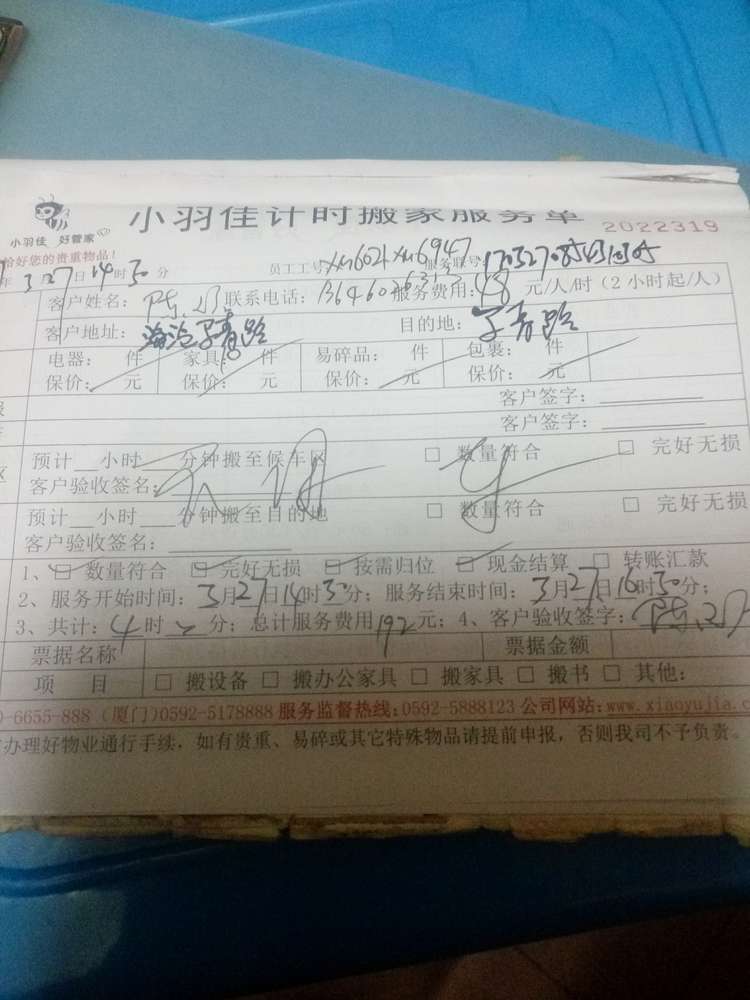 小羽佳计时搬家服务单
2022319
小羽佳 好管家
恰好您的贵重物品!
年 3月27日14时30分 员工工号 服务联号
客户姓名: 联系电话: 服务费用: 48 元/人/时(2小时起/人)
客户地址: 海沧 目的地:
电器: 件 家具: 件 易碎品: 件 包裹: 件
保价: 元 保价: 元 保价: 元 保价: 元
客户签字:
客户签字:
预计__小时___分钟搬至候车区 □ 数量符合 □ 完好无损
客户验收签名:
预计__小时___分钟搬至目的地 □ 数量符合 □ 完好无损
客户验收签名:
1、☑ 数量符合 ☑ 完好无损 ☑ 按需归位 ☑ 现金结算 □ 转账汇款
2、服务开始时间: 3月27日14时30分; 服务结束时间: 3月27日16时30分;
3、共计: 4时 分; 总计服务费用192元; 4、客户验收签字:
票据名称 票据金额
项 目 □ 搬设备 □ 搬办公家具 □ 搬家具 □ 搬书 □ 其他:
-6655-888 (厦门)0592-5178888 服务监督热线:0592-5888123 公司网站:www.xiaoyujia.c
办理好物业通行手续,如有贵重、易碎或其它特殊物品请提前申报,否则我司不予负责。